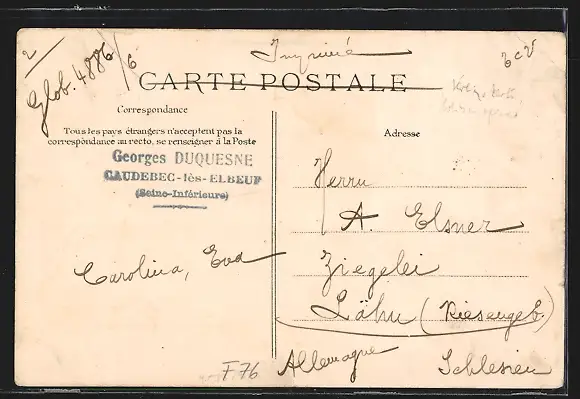 2
Glob. 4886/6
Imprimé
CARTE POSTALE
Correspondance
Tous les pays étrangers n'acceptent pas la
correspondance au recto, se renseigner à la Poste
Georges DUQUESNE
CAUDEBEC-lès-ELBEUF
(Seine-Inférieure)
Carolina, Eva
Adresse
Herrn
A. Elsner
Ziegelei
Lähn (Riesengeb.)
Allemagne
Schlesien
F76